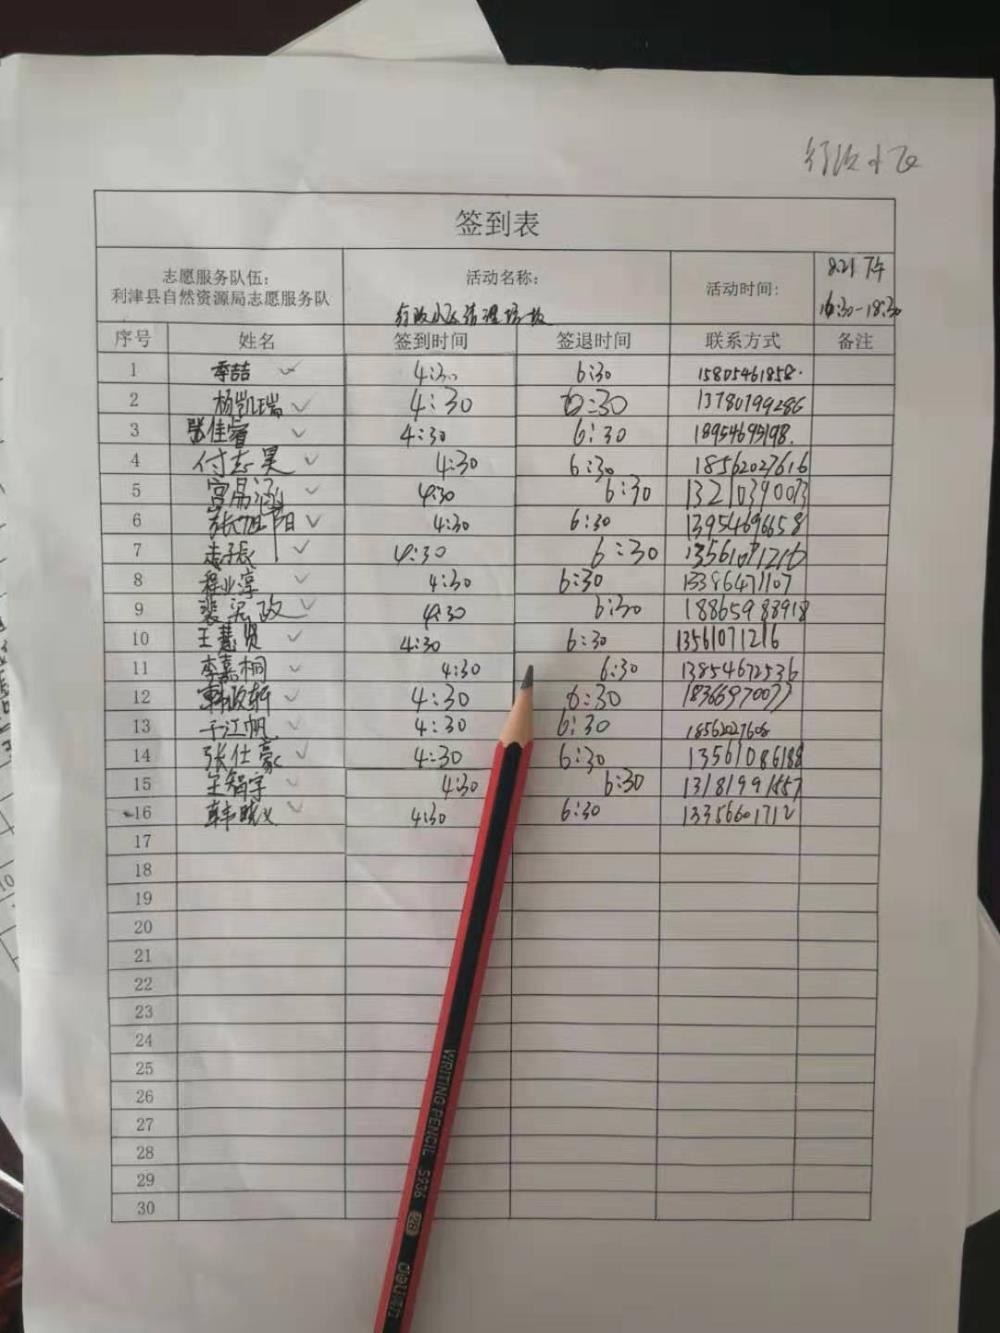 行政小区
签到表
志愿服务队伍：
利津县自然资源局志愿服务队
活动名称：
行政小区清理垃圾
活动时间：
8.21 下午
16:30-18:30
序号 姓名 签到时间 签退时间 联系方式 备注
1 李喆 4:30 6:30 15805461858.
2 杨凯瑞 4:30 6:30 13780199286
3 张佳睿 4:30 6:30 18954695198.
4 付志昊 4:30 6:30 18562027616
5 宫易涵 4:30 6:30 13210390073
6 张旭阳 4:30 6:30 13954696658
7 4:30 6:30 13561071216
8 程业淳 4:30 6:30 13386471107
9 4:30 6:30 18865983918
10 王慧贤 4:30 6:30 13561071216
11 李嘉桐 4:30 6:30 13854672536
12 韩政轩 4:30 6:30 18366970077
13 于江帆 4:30 6:30 18562027608
14 张仕豪 4:30 6:30 13561086188
15 王智宇 4:30 6:30 13181991557
16 韩晓义 4:30 6:30 13356601712
17
18
19
20
21
22
23
24
25
26
27
28
29
30
WRITING PENCIL S936 2B deli得力